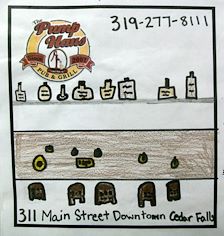 319-277-8111
The
Pump
Haus
2007
PUB & GRILL
311 Main Street Downtown Cedar Falls